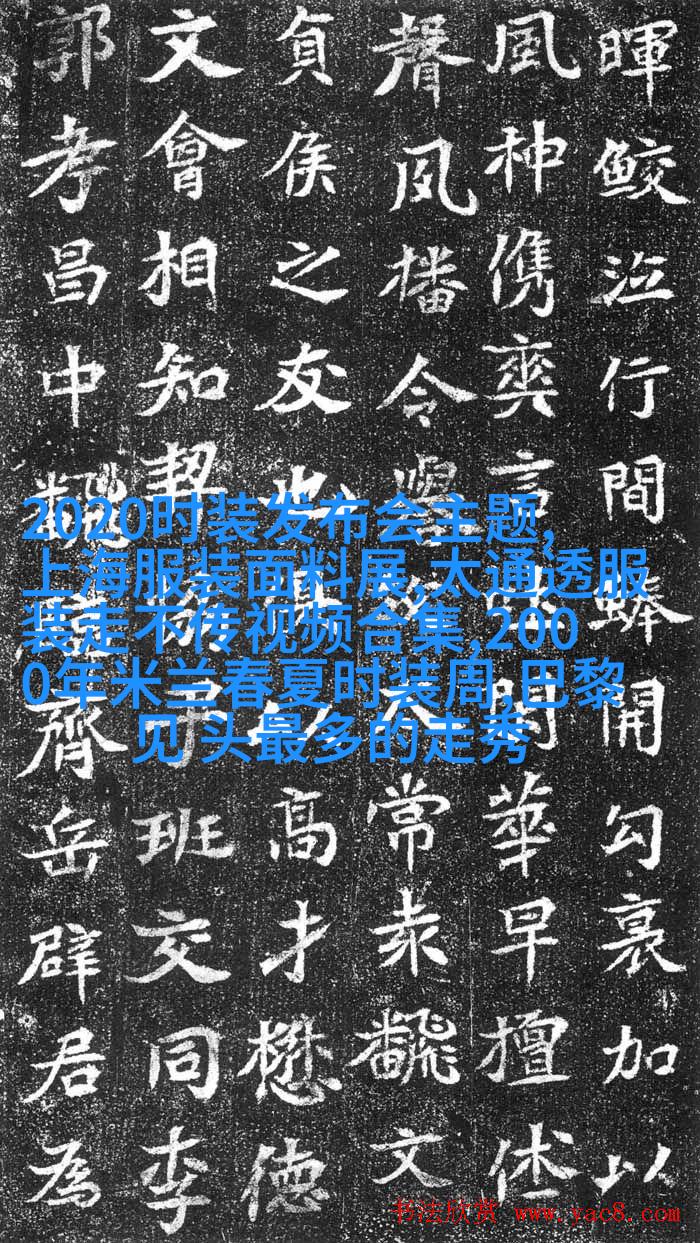 暉鮫泣行間蜯開勾裏加以
風神儁爽言閑華早擅
聲風播令常飜文
之友也高才懋德
文會相知契班交同李
郭孝昌中飜齊岳辟君為
2020时装发布会主题,
上海服装面料展,太通透服
装走不传视频合集,200
0年米兰春夏时装周,巴黎
见 头最多的走秀
书法欣赏 www.yac8.com